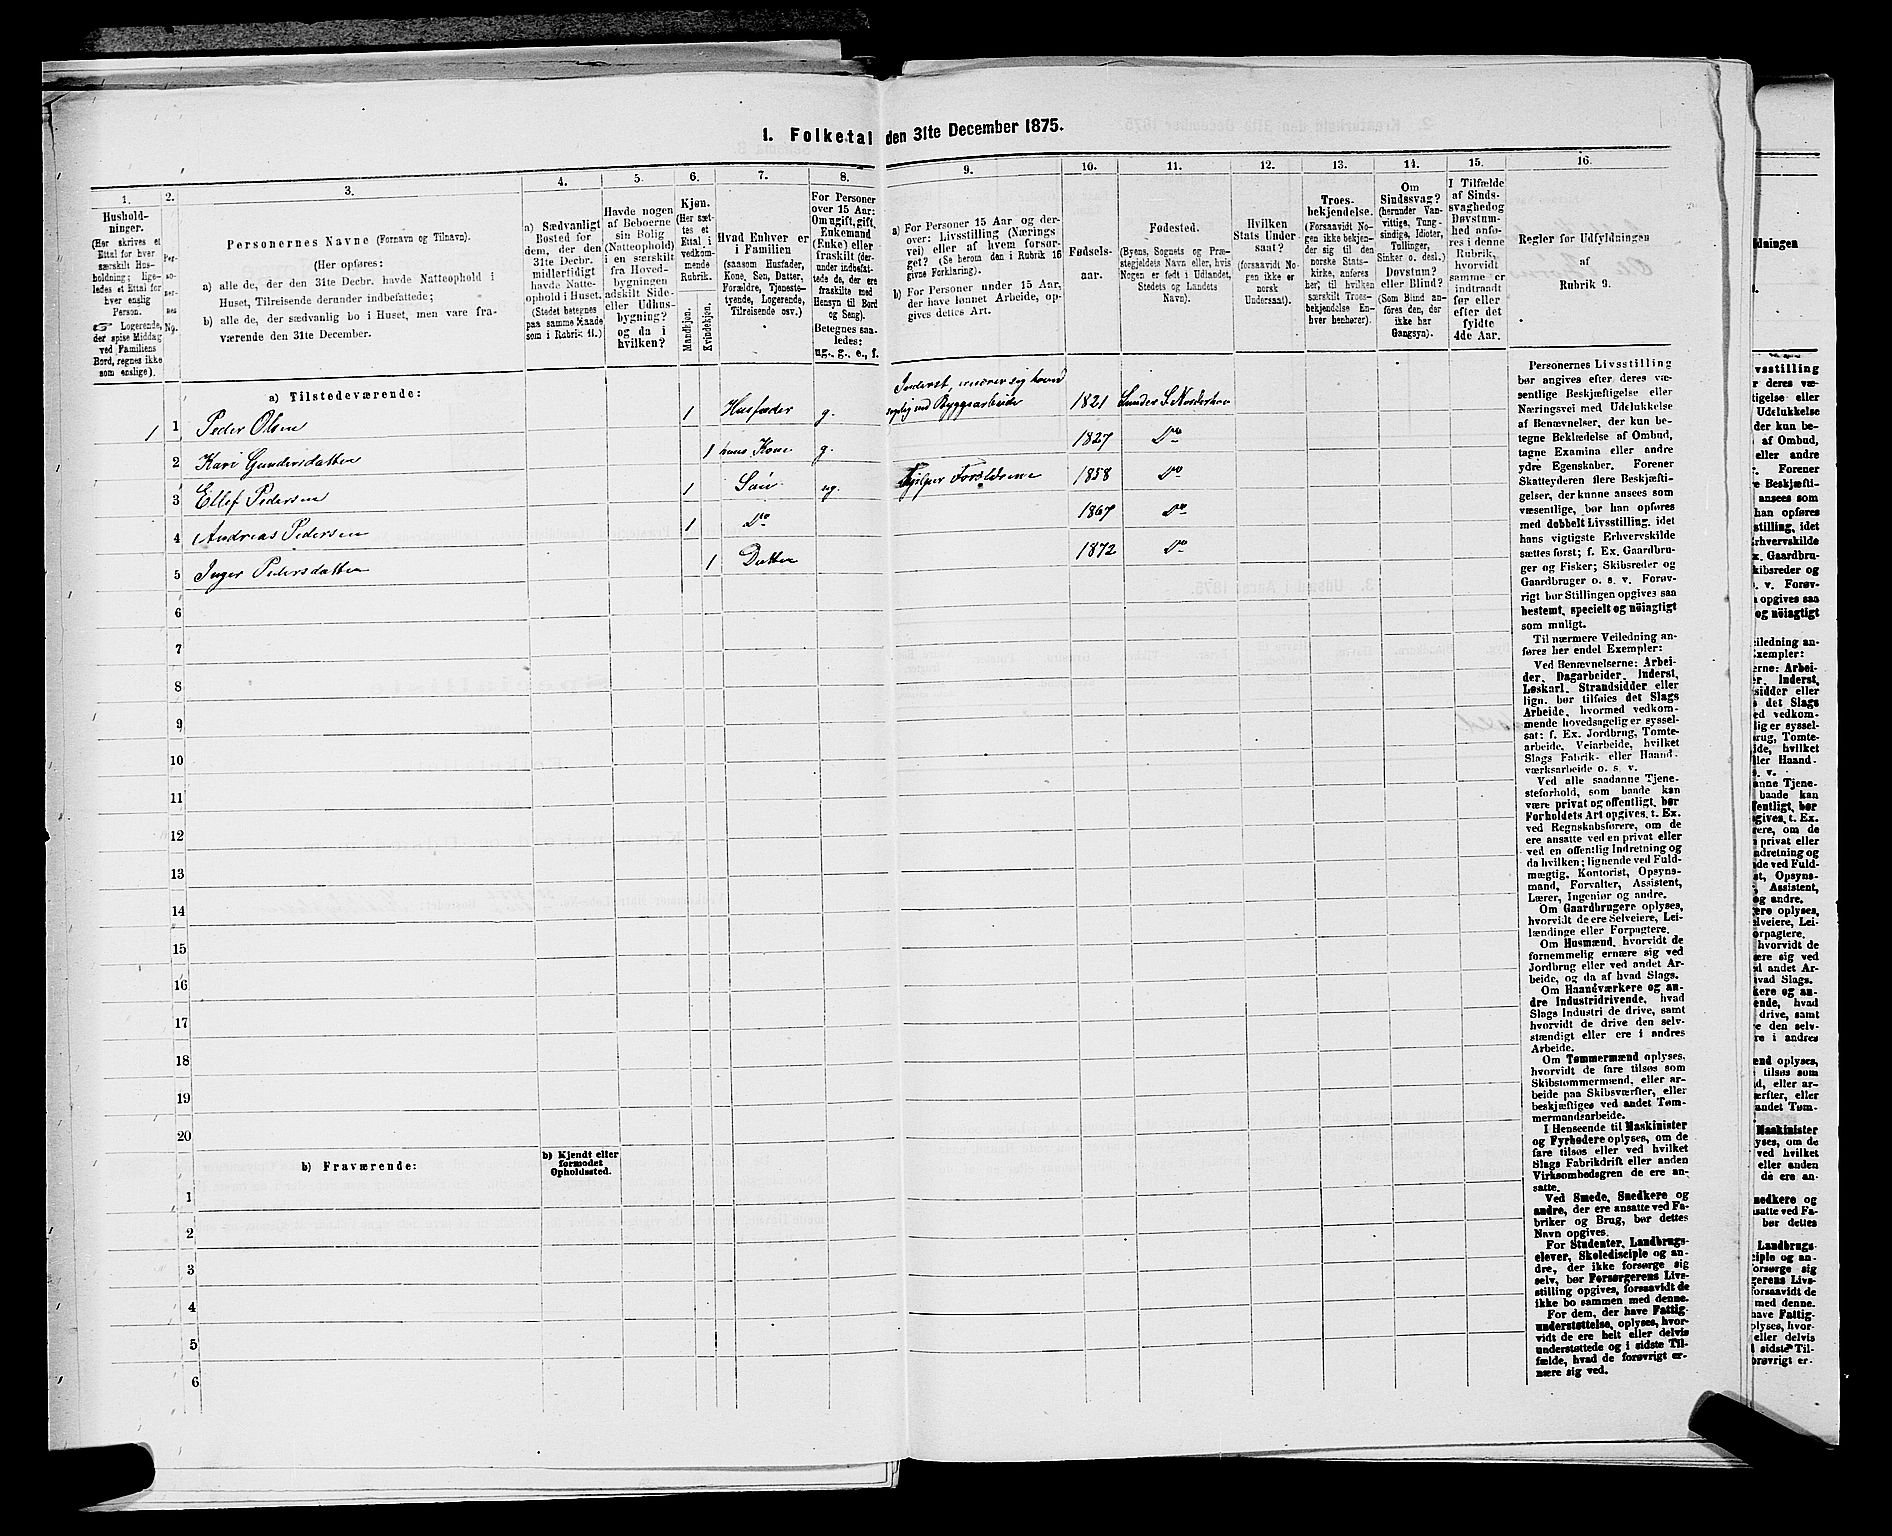 1. Folketal den 31te December 1875.
1.
Hushold-
ninger.
(Her skrives et
Ettal for hver
særskilt Hus-
holdning; lige-
ledes et Ettal for
hver enslig
Person.
☞ Logerende,
der spise Middag
ved Familiens
Bord, regnes ikke
som enslige).
2.
Per-
so-
ner-
nes
No.
3.
Personernes Navne (Fornavn og Tilnavn).
(Her opføres:
a) alle de, der den 31te Decbr. havde Natteophold i
Huset, Tilreisende derunder indbefattede;
b) alle de, der sædvanlig bo i Huset, men vare fra-
værende den 31te December.
4.
a) Sædvanligt
Bosted for
dem, der den
31te Decbr.
midlertidigt
havde Natte-
ophold i Huset.
(Stedet betegnes
paa samme Maade
som i Rubrik 11.)
5.
Havde nogen
af Beboerne
sin Bolig
(Natteophold)
i en særskilt
fra Hoved-
bygningen
adskilt Side-
eller Udhus-
bygning?
og da i
hvilken?
6.
Kjøn.
(Her sæt-
tes et
Ettal i
vedkom-
mende
Rubrik.
Mandkjøn.
Kvindekjøn.
7.
Hvad Enhver er
i Familien
(saasom Husfader,
Kone, Søn, Datter,
Forældre, Tjeneste-
tyende, Logerende,
Tilreisende osv.)
8.
For Personer
over 15 Aar:
Om ugift, gift,
Enkemand
(Enke) eller
fraskilt (der-
under indbefat-
tede de, der ere
fraskilte med
Hensyn til Bord
og Seng).
Betegnes saa-
ledes:
ug., g., e., f.
9.
a) For Personer 15 Aar og der-
over: Livsstilling (Nærings
vei) eller af hvem forsør-
get? (Se herom den i Rubrik 16
givne Forklaring).
b) For Personer under 15 Aar,
der have lønnet Arbeide, op-
gives dettes Art.
10.
Fødsels-
aar.
11.
Fødested.
(Byens, Sognets og Præ-
stegjeldets Navn eller, hvis
Nogen er født i Udlandet,
Stedets og Landets
Navn).
12.
Hvilken
Stats Under-
saat?
(forsaavidt No-
gen ikke er
norsk
Undersaat).
13.
Troes-
bekjendelse.
(Forsaavidt No-
gen ikke bekjen-
der sig til den
norske Stats-
kirke, anføres
her, til hvilken
særskilt Troes-
bekjendelse En-
hver henhører).
14.
Om
Sindssvag?
(herunder Van-
vittige, Tung-
sindige, Idioter,
Tullinger,
Sinker o. desl.)
Døvstum?
eller Blind?
(Som Blind an-
føres den, der
ikke har
Gangsyn).
15.
I Tilfælde
af Sinds-
svaghed og
Døvstum-
hed anfø-
res i denne
Rubrik,
hvorvidt
samme er
indtraadt
før eller
efter det
fyldte
4de Aar.
16.
Regler for Udfyldningen
af
Rubrik 9.
a) Tilstedeværende:
1 1 Peder Olsen 1 Husfader g. Inderst, ernærer sig hoved
sagelig ved Byggearbeide 1821 Lunder S. Norderhov
2 Kari Gundersdatter 1 hans Kone g. 1827 Do
3 Ellef Pedersen 1 Søn ug. Hjelper Forældrene 1858 Do
4 Andreas Pedersen 1 Do 1867 Do
5 Inger Pedersdatter 1 Datter 1872 Do
6
7
8
9
10
11
12
13
14
15
16
17
18
19
20
b) Fraværende:
b) Kjendt eller
formodet
Opholdssted.
1
2
3
4
5
6
Personernes Livsstilling
bør angives efter deres væ-
sentlige Beskjæftigelse eller
Næringsvei med Udelukkelse
af Benævnelser, der kun be-
tegne Beklædelse af Ombud,
tagne Examina eller andre
ydre Egenskaber. Forener
Skatteyderen flere Beskjæfti-
gelser, der kunne ansees som
væsentlige, bør han opføres
med dobbelt Livsstilling, idet
hans vigtigste Erhvervskilde
sættes først; f. Ex. Gaardbru-
ger og Fisker; Skibsreder og
Gaardbruger o. s. v. Forøv-
rigt bør Stillingen opgives saa
bestemt, specielt og nöiagtigt
som muligt.
Til nærmere Veiledning an-
føres her endel Exempler:
Ved Benævnelserne: Arbei-
der, Dagarbeider, Inderst,
Løskarl, Strandsidder eller
lign. bør tilføies det Slags
Arbeide, hvormed vedkom-
mende hovedsagelig er syssel-
sat; f. Ex. Jordbrug, Tomte-
arbeide, Veiarbeide, hvilket
Slags Fabrik- eller Haand-
værksarbeide o. s. v.
Ved alle saadanne Tjene-
steforhold, som baade kan
være privat og offentligt, bør
Forholdets Art opgives, t. Ex.
ved Regnskabsførere, om de
ere ansatte ved en privat eller
ved en offentlig Indretning og
da hvilken; lignende ved Fuld-
mægtig, Kontorist, Opsyns-
mand, Forvalter, Assistent,
Lærer, Ingeniør og andre.
Om Gaardbrugere oplyses,
hvorvidt de ere Selveiere, Lei-
lændinge eller Forpagtere.
Om Husmænd, hvorvidt de
fornemmelig ernære sig ved
Jordbrug eller ved andet Ar-
beide, og da af hvad Slags.
Om Haandværkere og an-
dre Industridrivende, hvad
Slags Industri de drive, samt
hvorvidt de drive den selv-
stændigt eller ere i andres
Arbeide.
Om Tømmermænd oplyses,
hvorvidt de fare tilsøs som
Skibstømmermænd, eller ar-
beide paa Skibsværfter, eller
beskjæftiges ved andet Tøm-
mermandsarbeide.
I Henseende til Maskinister
og Fyrbødere oplyses, om de
fare tilsøs eller ved hvilket
Slags Fabrikdrift eller anden
Virksombedsgren de ere an-
satte.
Ved Smede, Snedkere og
andre, der ere ansatte ved Fa-
briker og Brug, bør dettes
Navn opgives.
For Studenter, Landbrugs-
elever, Skoledisciple og an-
dre, der ikke forsørge sig
selv, bør Forsørgerens Livs-
stilling opgives, forsaavidt de
ikke bo sammen med denne.
For dem, der have Fattig-
understøttelse, oplyses, hvor-
vidt de ere helt eller delvis
understøttede og i sidste Til-
fælde, hvad de forøvrigt er-
nære sig ved.